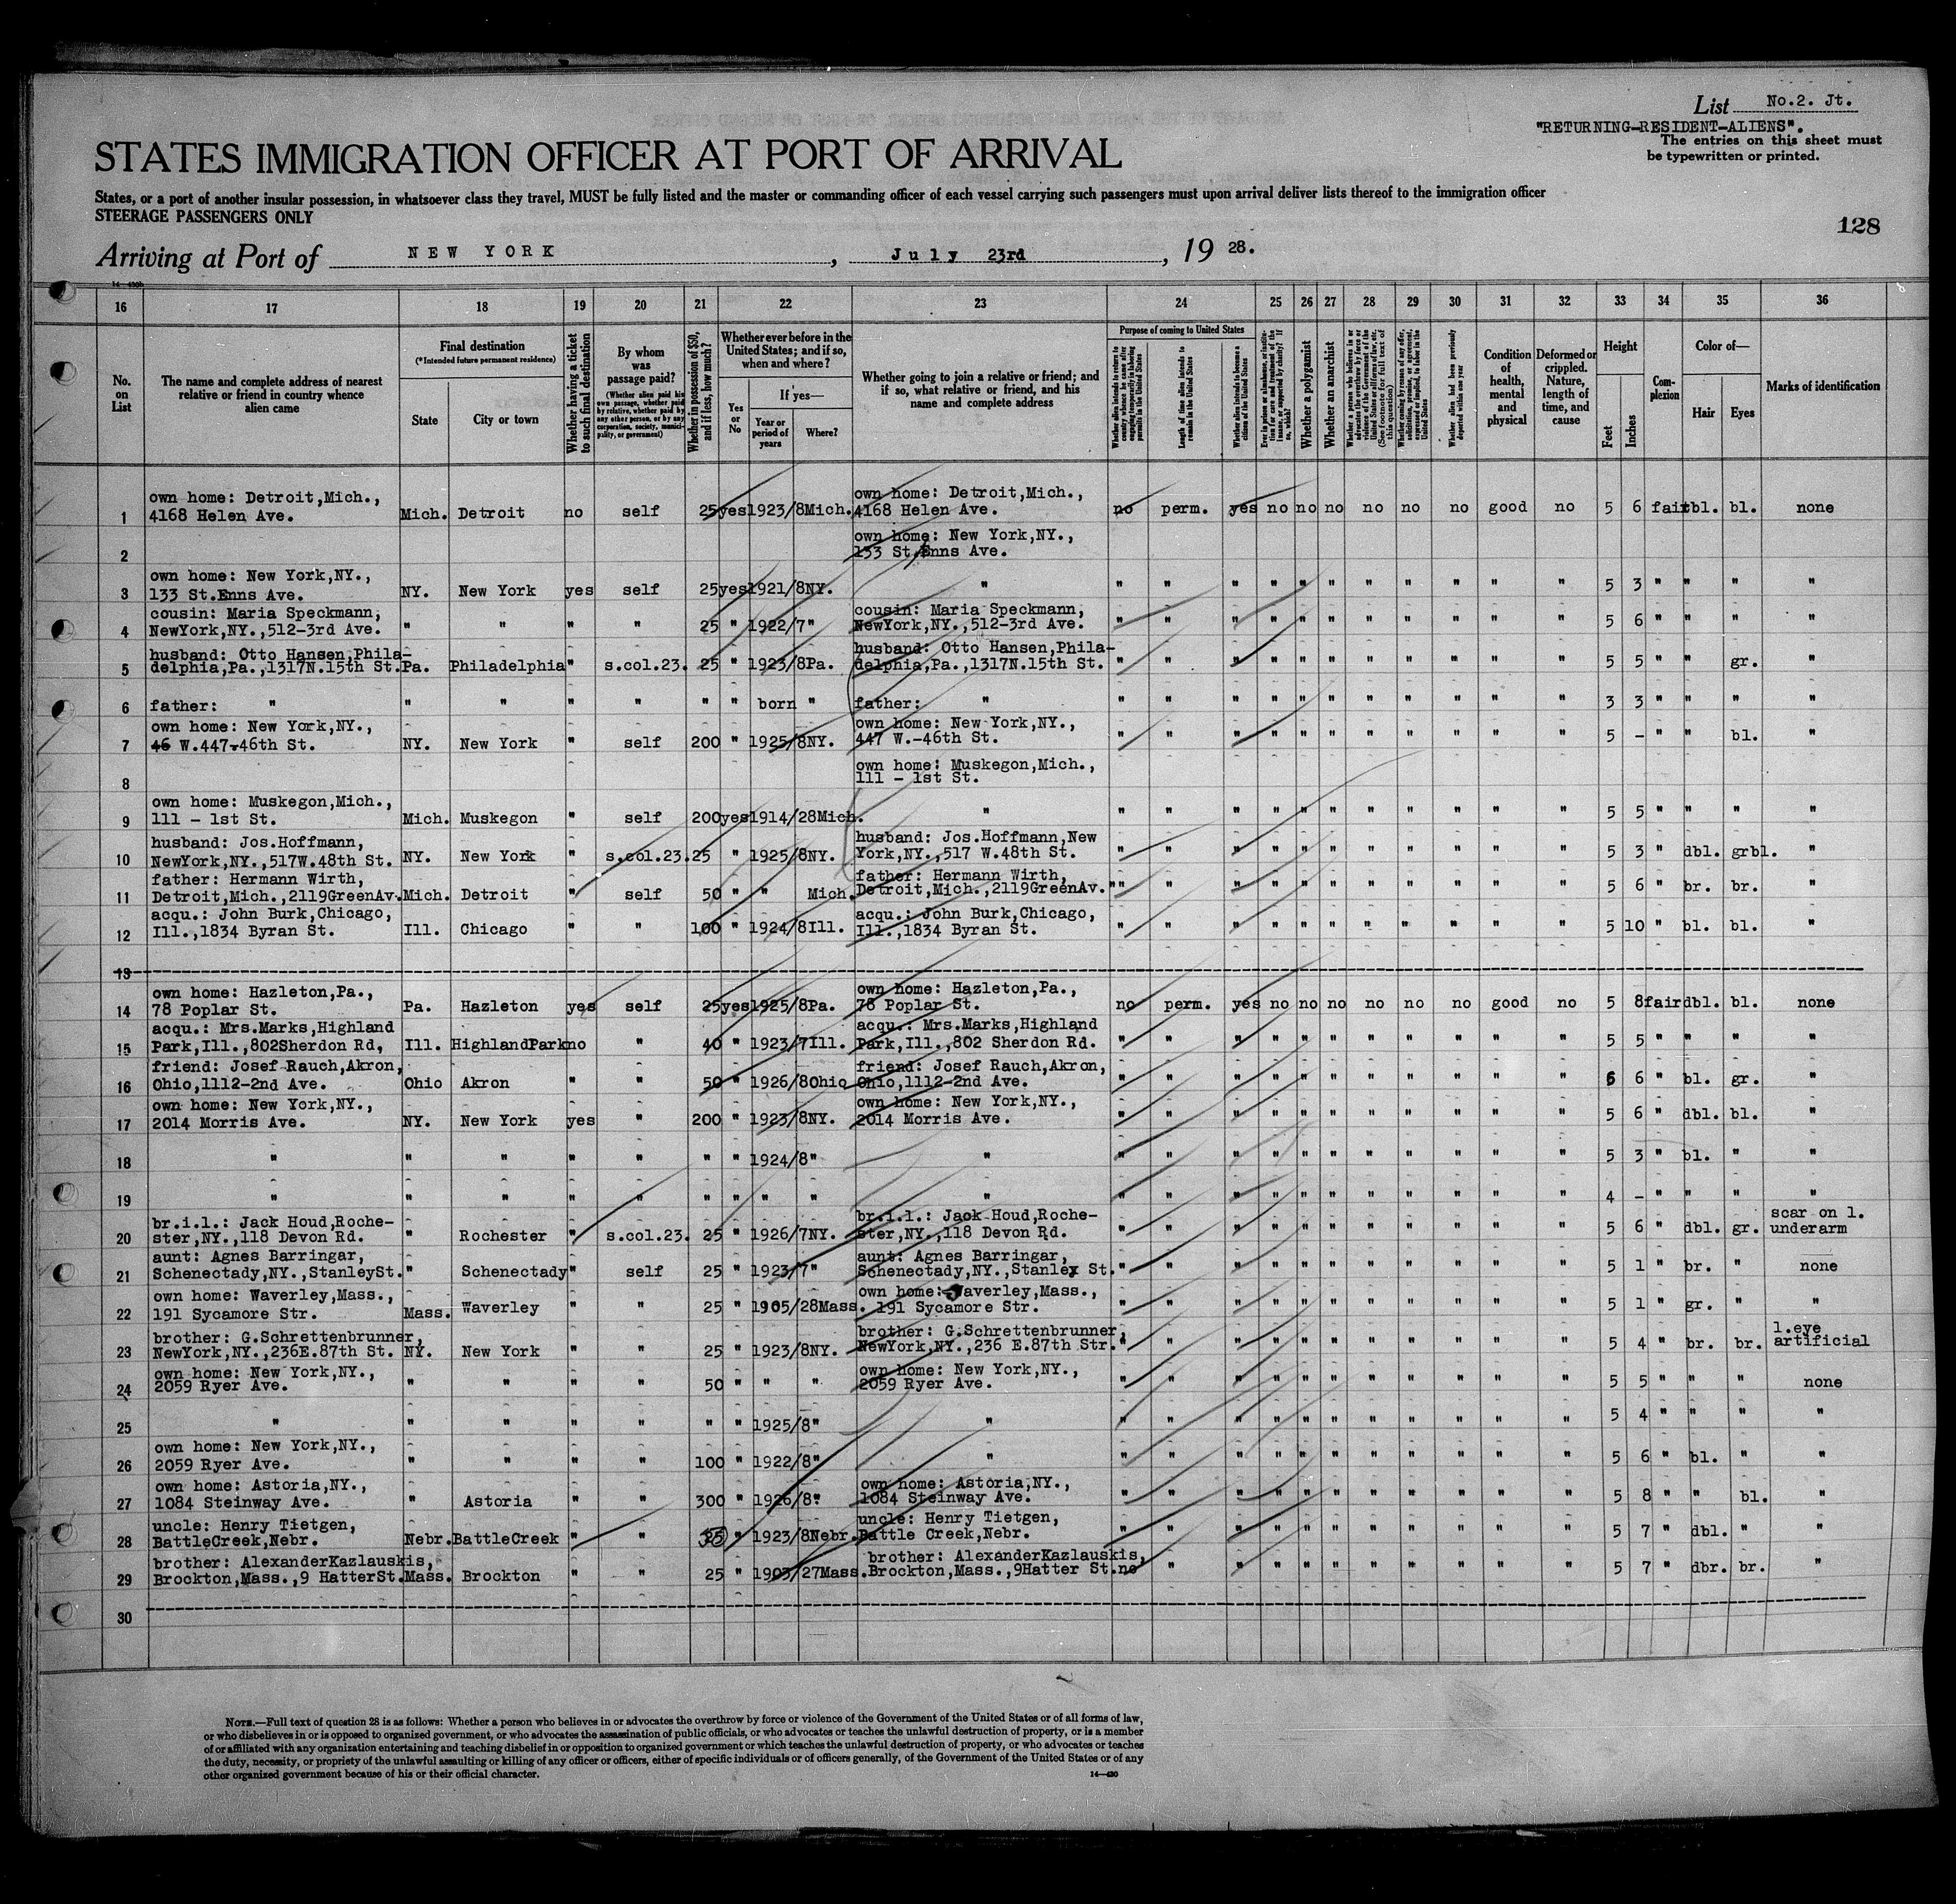 List No.2. Jt.
"RETURNING-RESIDENT-ALIENS".
The entries on this sheet must
be typewritten or printed.
STATES IMMIGRATION OFFICER AT PORT OF ARRIVAL
States, or a port of another insular possession, in whatsoever class they travel, MUST be fully listed and the master or commanding officer of each vessel carrying such passengers must upon arrival deliver lists thereof to the immigration officer
STEERAGE PASSENGERS ONLY
128
Arriving at Port of NEW YORK, July 23rd, 19 28.
16 17 18 19 20 21 22 23 24 25 26 27 28 29 30 31 32 33 34 35 36
No. on List
The name and complete address of nearest relative or friend in country whence alien came
Final destination
(*Intended future permanent residence)
State
City or town
Whether having a ticket to such final destination
By whom was passage paid?
(Whether alien paid his own passage, whether paid by relative, whether paid by any other person, or by any corporation, society, municipality, or government)
Whether in possession of $50, and if less, how much?
Whether ever before in the United States; and if so, when and where?
Yes or No
If yes—
Year or period of years
Where?
Whether going to join a relative or friend; and if so, what relative or friend, and his name and complete address
Purpose of coming to United States
Length of time alien intends to remain in the United States
Whether alien intends to become a citizen of the United States
Whether a polygamist
Whether an anarchist
Condition of health, mental and physical
Deformed or crippled. Nature, length of time, and cause
Height
Feet
Inches
Complexion
Color of—
Hair
Eyes
Marks of identification
1 own home: Detroit,Mich., 4168 Helen Ave. Mich. Detroit no self 25 yes 1923/8 Mich. own home: Detroit,Mich., 4168 Helen Ave. no perm. yes no no no no no no good no 5 6 fair dbl. bl. none
2 own home: New York,NY., 133 St.Enns Ave.
3 own home: New York,NY., 133 St.Enns Ave. NY. New York yes self 25 yes 1921/8 NY. " " " " " " " " " " " " 5 3 " " " "
4 cousin: Maria Speckmann, NewYork,NY.,512-3rd Ave. " " " " 25 " 1922/7 " cousin: Maria Speckmann, NewYork,NY.,512-3rd Ave. " " " " " " " " " " " 5 6 " " " "
5 husband: Otto Hansen,Phila-delphia,Pa.,1317N.15th St. Pa. Philadelphia " s.col.23. 25 " 1923/8 Pa. husband: Otto Hansen,Phila-delphia,Pa.,1317N.15th St. " " " " " " " " " " " 5 5 " " gr. "
6 father: " " " " " " " born " father: " " " " " " " " " " " " 3 3 " " " "
7 own home: New York,NY., 46 W.447-46th St. NY. New York " self 200 " 1925/8 NY. own home: New York,NY., 447 W.-46th St. " " " " " " " " " " " 5 - " " bl. "
8 own home: Muskegon,Mich., 111 - 1st St.
9 own home: Muskegon,Mich., 111 - 1st St. Mich. Muskegon " self 200 yes 1914/28 Mich. " " " " " " " " " " " " 5 5 " " " "
10 husband: Jos.Hoffmann, NewYork,NY.,517W.48th St. NY. New York " s.col.23. 25 " 1925/8 NY. husband: Jos.Hoffmann,New York,NY.,517 W.48th St. " " " " " " " " " " " 5 3 " dbl. grbl. "
11 father: Hermann Wirth, Detroit,Mich.,2119GreenAv. Mich. Detroit " self 50 " " Mich. father: Hermann Wirth, Detroit,Mich.,2119GreenAv. " " " " " " " " " " " 5 6 " br. br. "
12 acqu.: John Burk,Chicago, Ill.,1834 Byran St. Ill. Chicago " " 100 " 1924/8 Ill. acqu.: John Burk,Chicago, Ill.,1834 Byran St. " " " " " " " " " " " 5 10 " bl. bl. "
13
14 own home: Hazleton,Pa., 78 Poplar St. Pa. Hazleton yes self 25 yes 1925/8 Pa. own home: Hazleton,Pa., 78 Poplar St. no perm. yes no no no no no no good no 5 8 fair dbl. bl. none
15 acqu.: Mrs.Marks,Highland Park,Ill.,802Sherdon Rd, Ill. HighlandPark no " 40 " 1923/7 Ill. acqu.: Mrs.Marks,Highland Park,Ill.,802 Sherdon Rd. " " " " " " " " " " " 5 5 " " " "
16 friend: Josef Rauch,Akron, Ohio,1112-2nd Ave. Ohio Akron " " 50 " 1926/8 Ohio friend: Josef Rauch,Akron, Ohio,1112-2nd Ave. " " " " " " " " " " " 6 6 " bl. gr. "
17 own home: New York,NY., 2014 Morris Ave. NY. New York yes " 200 " 1923/8 NY. own home: New York,NY., 2014 Morris Ave. " " " " " " " " " " " 5 6 " dbl. bl. "
18 " " " " " " " 1924/8 " " " " " " " " " " " " " 5 3 " bl. " "
19 " " " " " " " " " " " " " " " " " " " " " 4 - " " " "
20 br.i.l.: Jack Houd,Roche-ster,NY.,118 Devon Rd. " Rochester " s.col.23. 25 " 1926/7 NY. br.i.l.: Jack Houd,Roche-ster,NY.,118 Devon Rd. " " " " " " " " " " " 5 6 " dbl. gr. scar on l. underarm
21 aunt: Agnes Barringar, Schenectady,NY.,StanleySt. " Schenectady " self 25 " 1923/7 " aunt: Agnes Barringar, Schenectady,NY.,Stanley St. " " " " " " " " " " " 5 1 " br. " none
22 own home: Waverley,Mass., 191 Sycamore Str. Mass. Waverley " " 25 " 1905/28 Mass. own home: Waverley,Mass., 191 Sycamore Str. " " " " " " " " " " " 5 1 " gr. " "
23 brother: G.Schrettenbrunner, NewYork,NY.,236E.87th St. NY. New York " " 25 " 1923/8 NY. brother: G.Schrettenbrunner, NewYork,NY.,236 E.87th Str. " " " " " " " " " " " 5 4 " br. br. l.eye artificial
24 own home: New York,NY., 2059 Ryer Ave. " " " " 50 " " " own home: New York,NY., 2059 Ryer Ave. " " " " " " " " " " " 5 5 " " " none
25 " " " " " " " 1925/8 " " " " " " " " " " " " " 5 4 " " " "
26 own home: New York,NY., 2059 Ryer Ave. " " " " 100 " 1922/8 " " " " " " " " " " " " " 5 6 " bl. " "
27 own home: Astoria,NY., 1084 Steinway Ave. " Astoria " " 300 " 1926/8 " own home: Astoria,NY., 1084 Steinway Ave. " " " " " " " " " " " 5 8 " " bl. "
28 uncle: Henry Tietgen, BattleCreek,Nebr. Nebr. BattleCreek " " " 1923/8 Nebr. uncle: Henry Tietgen, Battle Creek,Nebr. " " " " " " " " " " " 5 7 " dbl. " "
29 brother: AlexanderKazlauskis, Brockton,Mass.,9 HatterSt. Mass. Brockton " " 25 " 1903/27 Mass. brother: AlexanderKazlauskis, Brockton,Mass.,9Hatter St. no " " " " " " " " " " 5 7 " dbr. br. "
30
NOTE.—Full text of question 28 is as follows: Whether a person who believes in or advocates the overthrow by force or violence of the Government of the United States or of all forms of law,
or who disbelieves in or is opposed to organized government, or who advocates the assassination of public officials, or who advocates or teaches the unlawful destruction of property, or is a member
of or affiliated with any organization entertaining and teaching disbelief in or opposition to organized government or which teaches the unlawful destruction of property, or who advocates or teaches
the duty, necessity, or propriety of the unlawful assaulting or killing of any officer or officers, either of specific individuals or of officers generally, of the Government of the United States or of any
other organized government because of his or their official character.